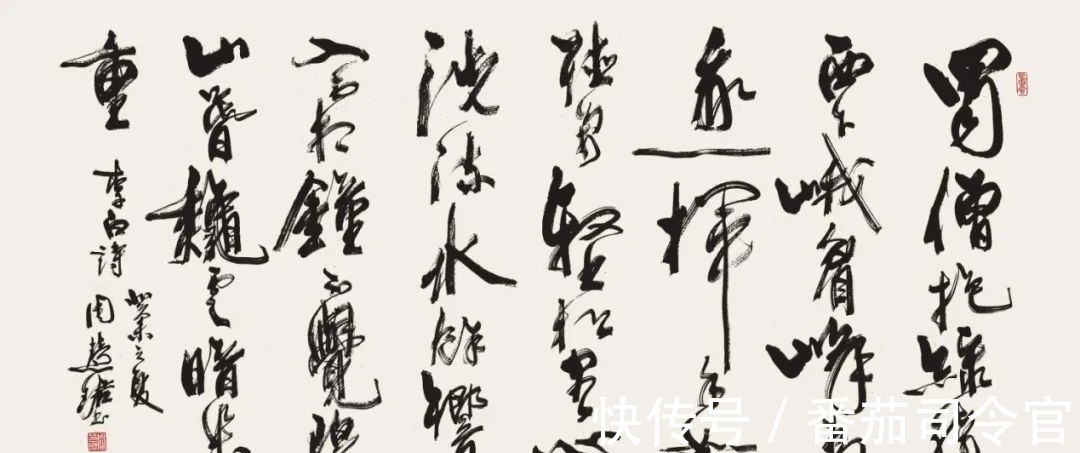 蜀僧抱綠
西下峨眉峰
我一揮手
聽万壑松客
洗流水餘響
入霜鐘不覺
山暮龝雲暗
重
李白詩
癸未之夏
周慧珺
快传号 / 番茄司令官